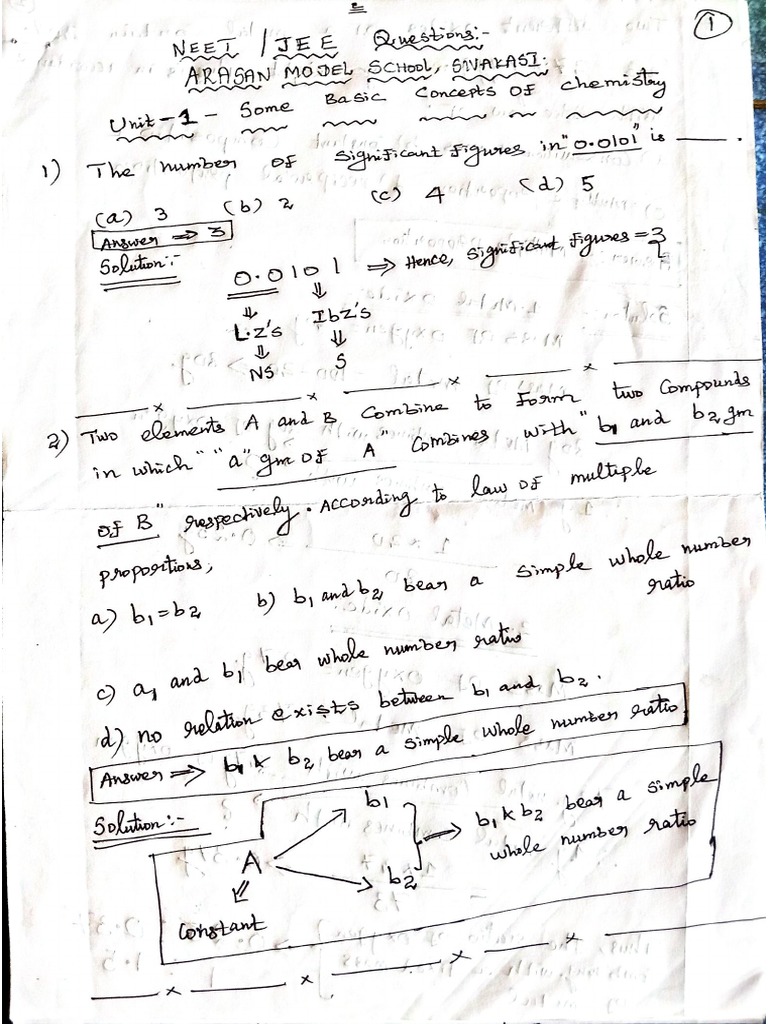 1
NEET / JEE Questions:-
ARASAN MODEL SCHOOL, SIVAKASI.
Unit-1 - Some Basic Concepts Of chemistry
1) The number of significant figures in "0.0101" is ____.
(a) 3 (b) 2 (c) 4 (d) 5
Answer ⇒ 3
Solution:-
0.0101 ⇒ Hence, significant figures = 3
⇓ ⇓
L.Z's Ibz's
⇓ ⇓
NS S
x x x x
2) Two elements A and B combine to form two compounds
in which "a" gm of A combines with "b1 and b2 gm
of B" respectively. According to law of multiple
proportions,
a) b1=b2 b) b1 and b2 bear a simple whole number
ratio
c) a1 and b1 bear whole number ratio
d) no relation exists between b1 and b2.
Answer ⇒ b1 & b2 bear a simple whole number ratio.
Solution:-
b1
A ⇒ b1 & b2 bear a simple
whole number ratio
b2
⇓
constant
x x x x